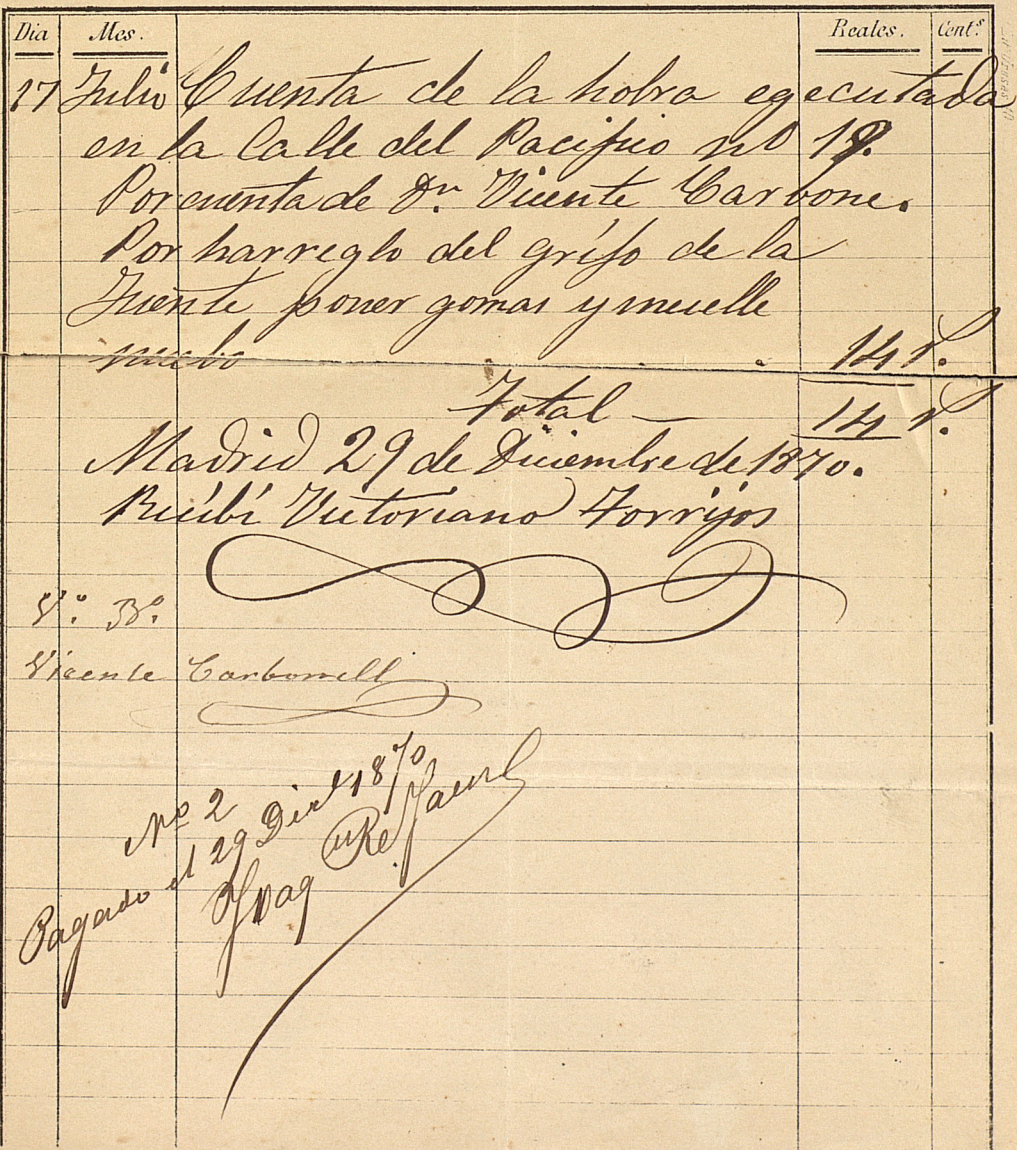 Dia Mes. Reales. Cent.s
17 Julio Cuenta de la hobra egecutada
en la Calle del Pacifico nº 19.
Por cuenta de Dn. Vicente Carbone.
Por harreglo del grifo de la
Fuente poner gomas y muelle
nuebo 14 r.
Total — 14 r.
Madrid 29 de Diciembre de 1870.
Recibí Victoriano Torrijos
Vº. Bº.
Vicente Carbonell
Nº 2
Pagado el 29 Dice 1870